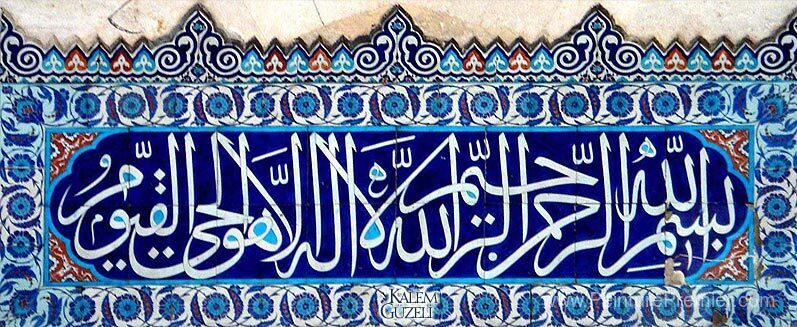 بسم الله الرحمن الرحيم الله لا اله الا هو الحي القيوم
KALEM
GÜZELİ
www.PeinturePremier.com